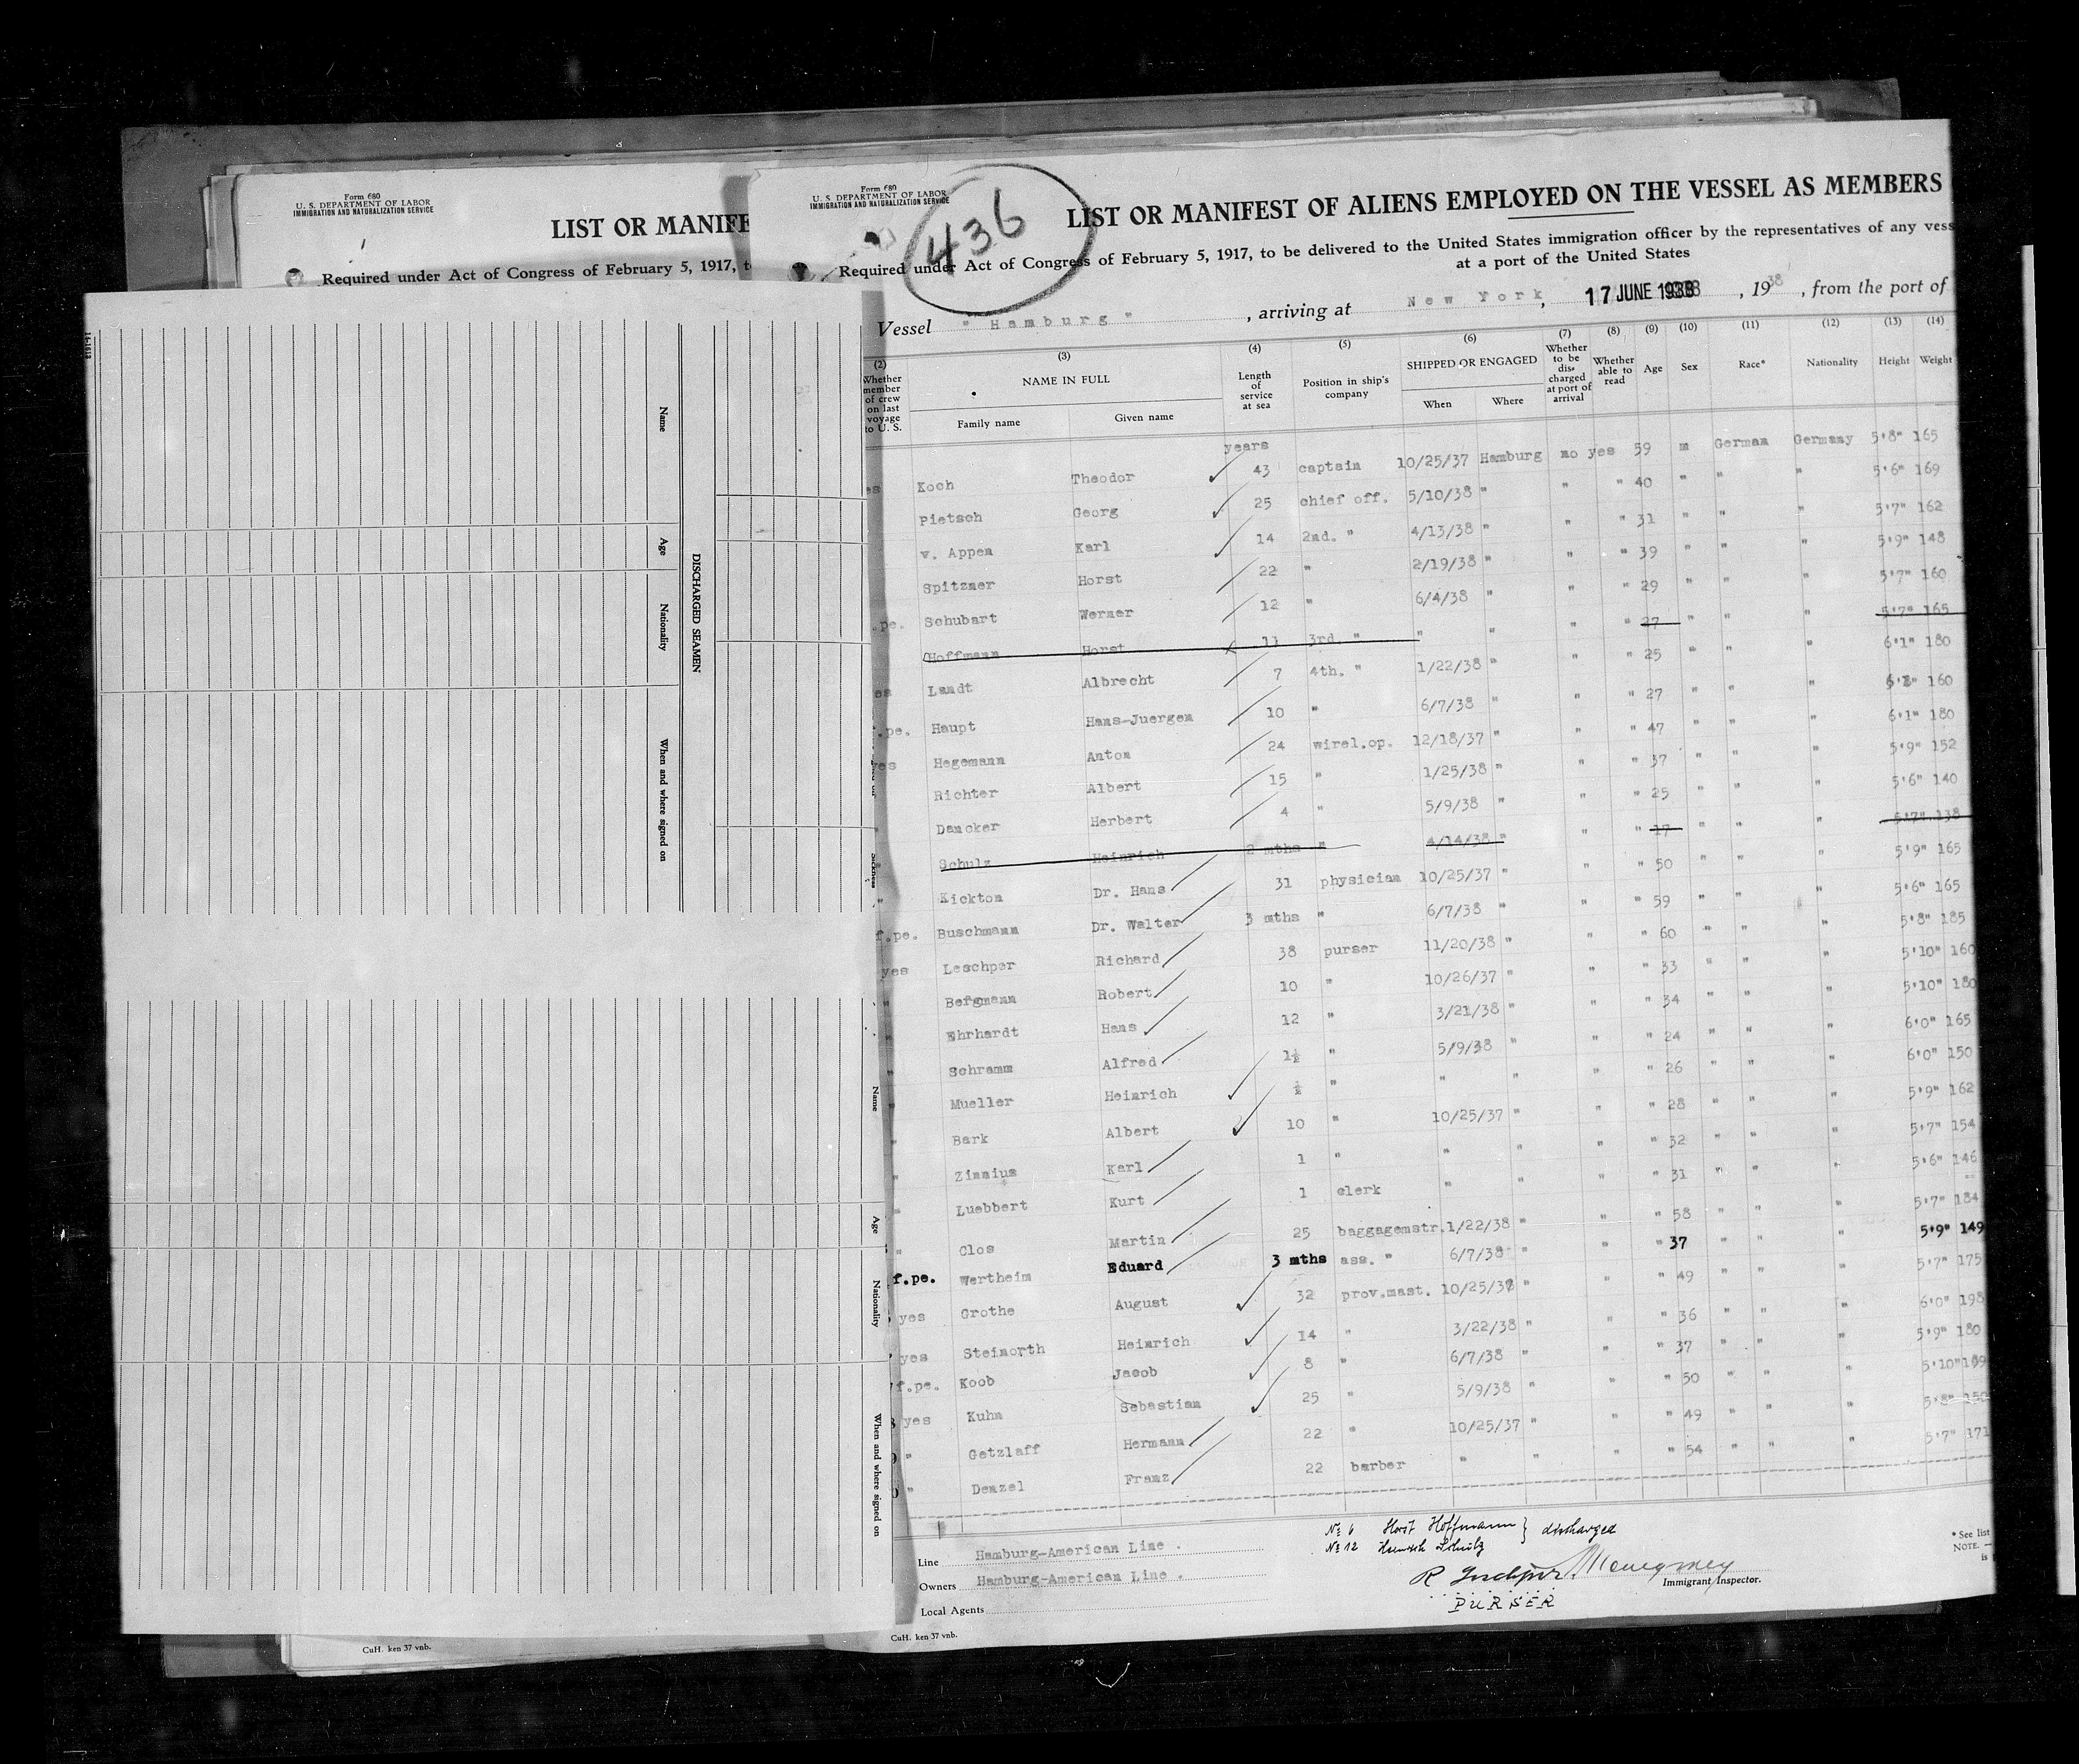 Form 680
U. S. DEPARTMENT OF LABOR
IMMIGRATION AND NATURALIZATION SERVICE
LIST OR MANIFE
Required under Act of Congress of February 5, 1917, t
Form 680
U. S. DEPARTMENT OF LABOR
IMMIGRATION AND NATURALIZATION SERVICE
436
LIST OR MANIFEST OF ALIENS EMPLOYED ON THE VESSEL AS MEMBERS
Required under Act of Congress of February 5, 1917, to be delivered to the United States immigration officer by the representatives of any vess
at a port of the United States
Vessel " Hamburg " , arriving at New York , 17 JUNE 1938 , 1938 , from the port of
(2) (3) (4) (5) (6) (7) (8) (9) (10) (11) (12) (13) (14)
Whether member of crew on last voyage to U. S.
NAME IN FULL
Family name Given name
Length of service at sea
Position in ship's company
SHIPPED OR ENGAGED
When Where
Whether to be discharged at port of arrival
Whether able to read
Age Sex Race* Nationality Height Weight
years
es Koch Theodor 43 captain 10/25/37 Hamburg no yes 59 m German Germany 5'8" 165
Pietsch Georg 25 chief off. 5/10/38 " " " 40 " " " 5'6" 169
v. Appen Karl 14 2nd. " 4/13/38 " " " 31 " " " 5'7" 162
Spitzner Horst 22 " 2/19/38 " " " 39 " " " 5'9" 148
.pe. Schubart Werner 12 " 6/4/38 " " " 29 " " " 5'7" 160
Hoffmann Horst 11 3rd. " " " " " 27 " " " 5'7" 165
es Landt Albrecht 7 4th. " 1/22/38 " " " 25 " " " 6'1" 180
.pe. Haupt Hans-Juergen 10 " 6/7/38 " " " 27 " " " 160
yes Hegemann Anton 24 wirel.op. 12/18/37 " " " 47 " " " 6'1" 180
Richter Albert 15 " 1/25/38 " " " 37 " " " 5'9" 152
" Dancker Herbert 4 " 5/9/38 " " " 25 " " " 5'6" 140
" Schulz Heinrich 2 mths " 4/14/38 " " " 17 " " " 5'7" 138
" Kickton Dr. Hans 31 physician 10/25/37 " " " 50 " " " 5'9" 165
f.pe. Buschmann Dr. Walter 3 mths " 6/7/38 " " " 59 " " " 5'6" 165
yes Leschper Richard 38 purser 11/20/38 " " " 60 " " " 5'8" 185
" Bergmann Robert 10 " 10/26/37 " " " 33 " " " 5'10" 160
" Ehrhardt Hans 12 " 3/21/38 " " " 34 " " " 5'10" 180
" Schramm Alfred 1½ " 5/9/38 " " " 24 " " " 6'0" 165
" Mueller Heinrich ½ " " " " " 26 " " " 6'0" 150
" Bark Albert 10 " 10/25/37 " " " 28 " " " 5'9" 162
" Zinnius Karl 1 " " " " " 32 " " " 5'7" 154
" Luebbert Kurt 1 clerk " " " " 31 " " " 5'6" 146
" Clos Martin 25 baggagemstr. 1/22/38 " " " 58 " " " 5'7" 184
f.pe. Wertheim Eduard 3 mths ass. " 6/7/38 " " " 37 " " " 5'9" 149
yes Grothe August 32 prov.mast. 10/25/37 " " " 49 " " " 5'7" 175
yes Steinorth Heinrich 14 " 3/22/38 " " " 36 " " " 6'0" 198
f.pe. Koob Jacob 8 " 6/7/38 " " 37 " " " 5'9" 180
8 yes Kuhn Sebastian 25 " 5/9/38 " " " 50 " " " 5'10"
9 " Getzlaff Hermann 22 " 10/25/37 " " " 49 " " " 5'8" 150
0 " Denzel Franz 22 barber " " " " 54 " " " 5'7" 171
Line Hamburg-American Line .
Owners Hamburg-American Line .
Local Agents
№ 6 Horst Hoffmann } discharged
№ 12 Heinrich Schulz
R Leschper
PURSER
Immigrant Inspector.
* See list
NOTE. —
is
CuH. ken 37 vnb.
CuH. ken 37 vnb.
DISCHARGED SEAMEN
Name
Age
Nationality
When and where signed on
Sickness
Name
Age
Nationality
When and where signed on